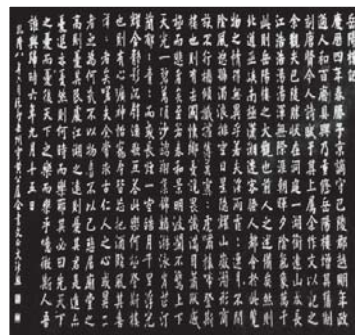 岳陽樓記
慶曆四年春滕子京謫守巴陵郡越明年政
通人和百廢具興乃重修岳陽樓增其舊制
刻唐賢今人詩賦于其上屬余作文以記之
余觀夫巴陵勝狀在洞庭一湖銜遠山吞長
江浩浩湯湯橫無際涯朝暉夕陰氣象萬千
此則岳陽樓之大觀也前人之述備矣然則
北通巫峽南極瀟湘遷客騷人多會于此覽
物之情得無異乎若夫霪雨霏霏連月不開
陰風怒號濁浪排空日星隱耀山岳潛形商
旅不行檣傾楫摧薄暮冥冥虎嘯猿啼登斯
樓也則有去國懷鄉憂讒畏譏滿目蕭然感
極而悲者矣至若春和景明波瀾不驚上下
天光一碧萬頃沙鷗翔集錦鱗游泳岸芷汀
蘭郁郁青青而或長煙一空皓月千里浮光
耀金靜影沉璧漁歌互答此樂何極登斯樓
也則有心曠神怡寵辱皆忘把酒臨風其喜
洋洋者矣嗟夫余嘗求古仁人之心或異二
者之為何哉不以物喜不以己悲居廟堂之
高則憂其民處江湖之遠則憂其君是進亦
憂退亦憂然則何時而樂耶其必曰先天下
之憂而憂後天下之樂而樂乎噫微斯人吾
誰與歸時六年九月十五日